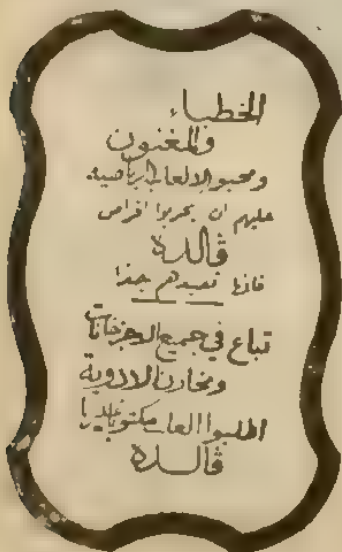 الخطباء
والمغنون
ومحبو الالعاب الرياضية
عليهم ان يجربوا اقراص
ڤالدة
فانها تفيدهم جدا
تباع في جميع الاجزخانات
ومخازن الادوية
اطلبوا العلب مكتوبا عليها
ڤالدة